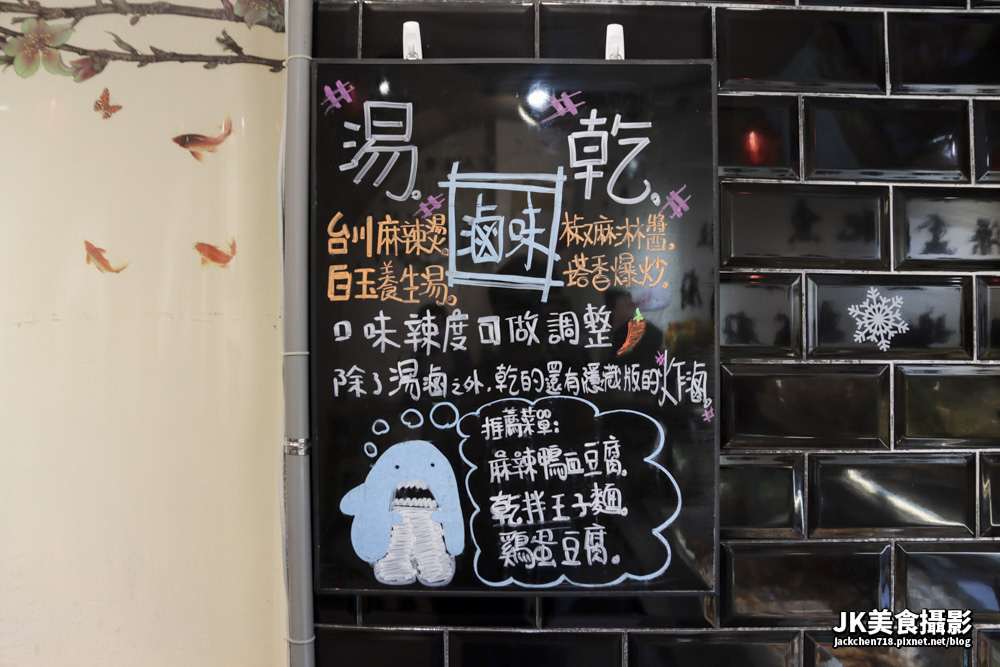 湯。 乾。
滷味
台川麻辣燙。
白玉養生湯。
椒麻淋醬,
塔香爆炒。
口味辣度可做調整
除了湯滷之外,乾的還有隱藏版的炸滷。
推薦菜單:
麻辣鴨血豆腐。
乾拌王子麵。
鷄蛋豆腐。
JK美食攝影
jackchen718.pixnet.net/blog